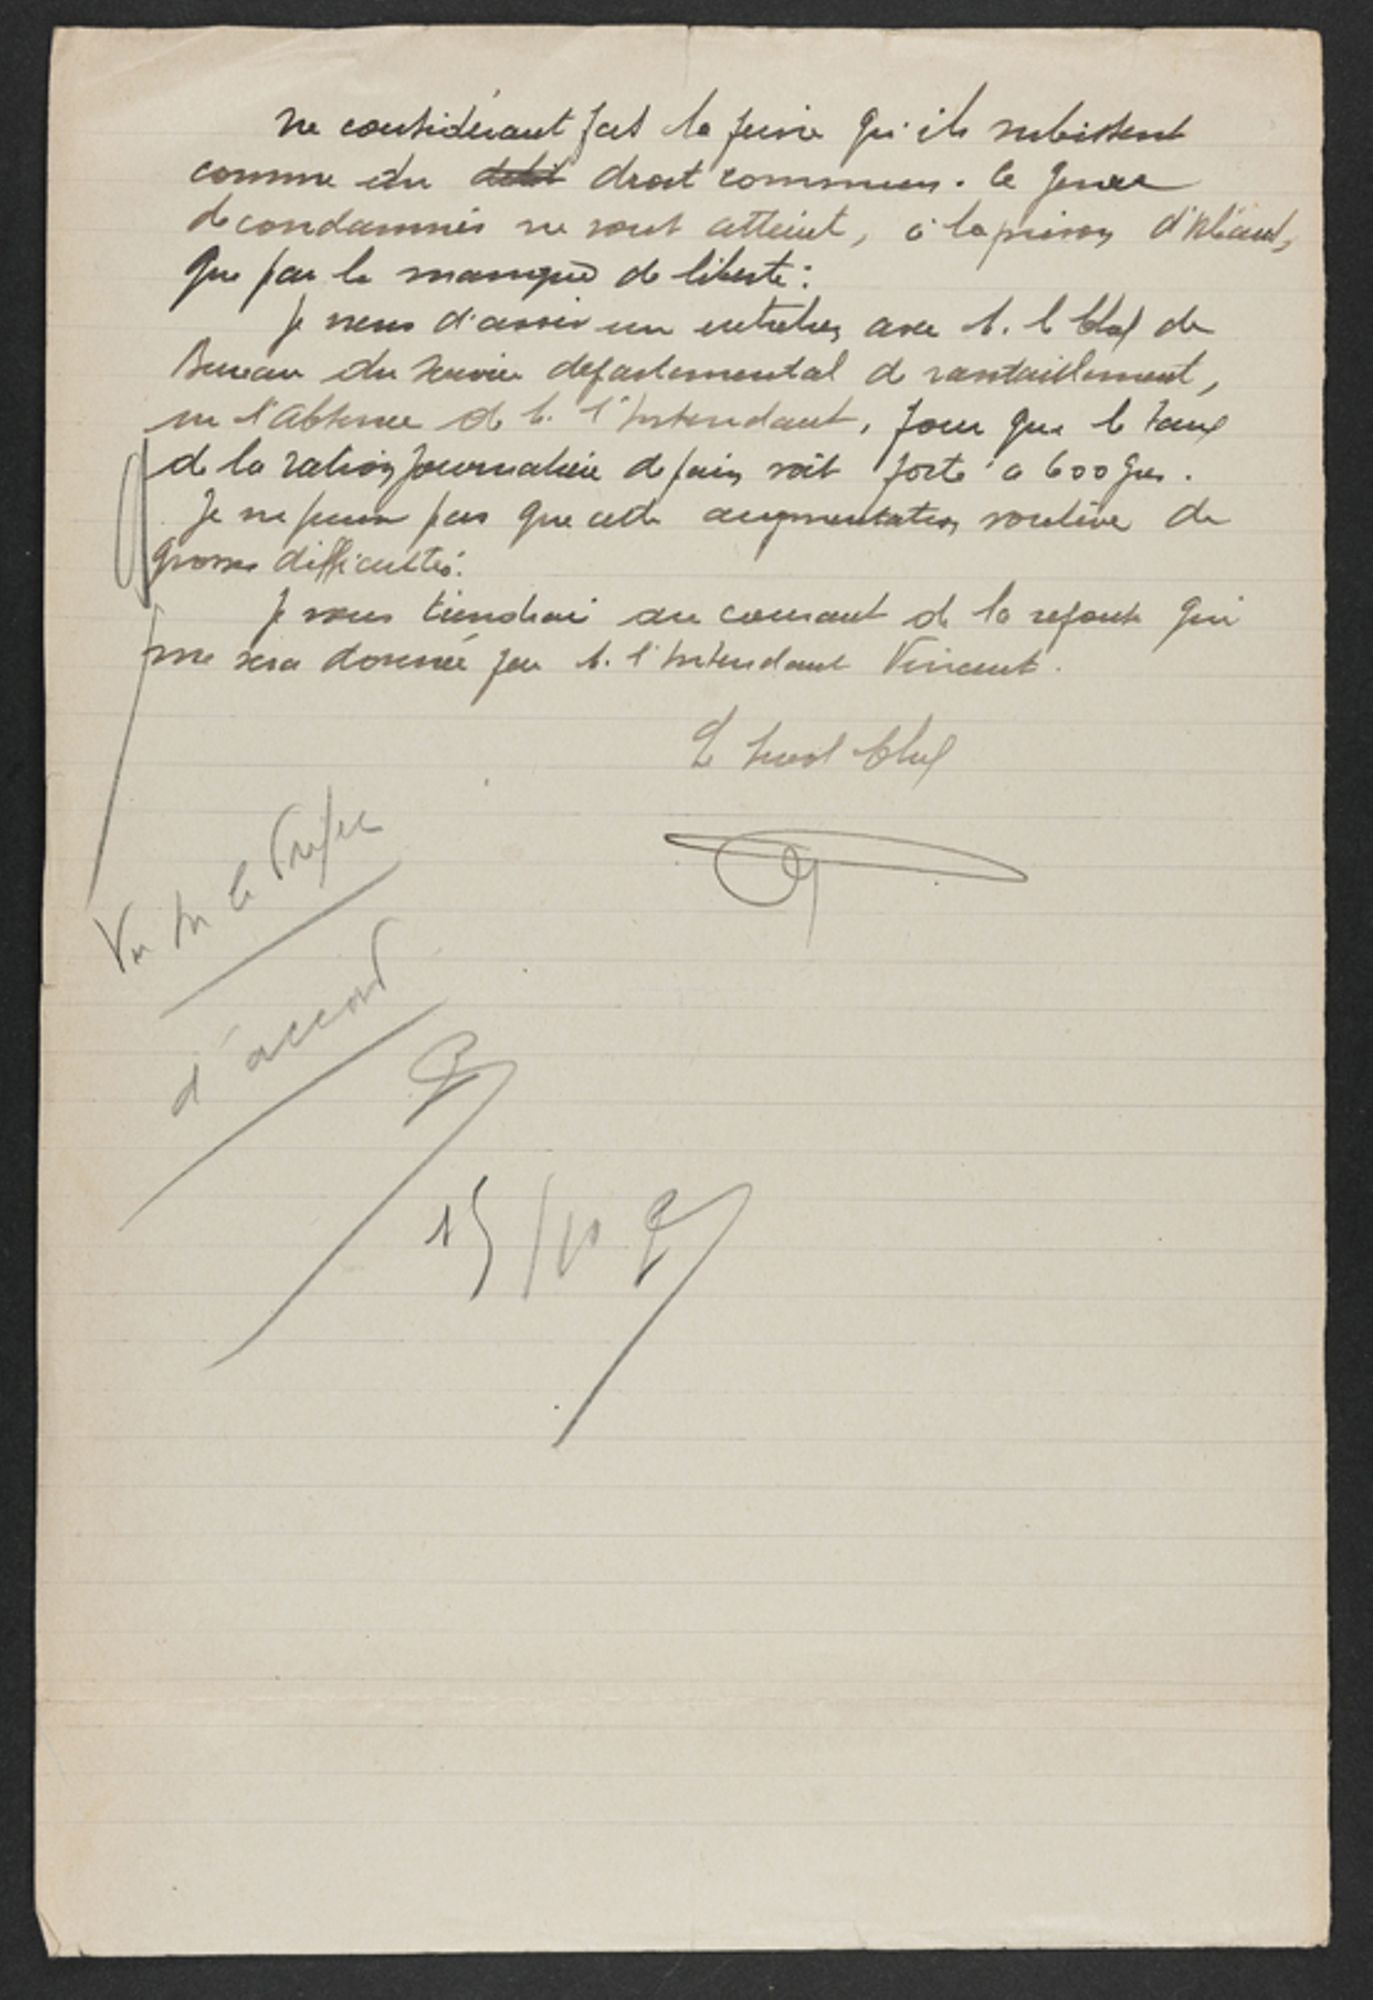 ne considérant pas la peine qu'ils subissent
comme du droit commun. Ce genre
de condamnés ne sont atteint, à la prison d'Orléans,
que par le manque de liberté.
Je viens d'avoir un entretien avec M. le Chef de
Bureau du Service départemental de ravitaillement,
en l'absence de M. l'Intendant, pour que le taux
de la ration journalière de pain soit porté à 600 grs.
Je ne pense pas que cette augmentation soulève de
grosses difficultés.
Je vous tiendrai au courant de la réponse qui
me sera donnée par M. l'Intendant Vincent.
Le Surv. Chef
Vu M. le Préfet
d'accord
15/10